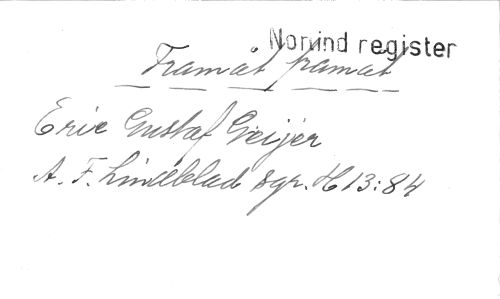 Norrind register
Framåt framåt
Eric Gustaf Geijer
A. F. Lindeblad sgr. H 13:84